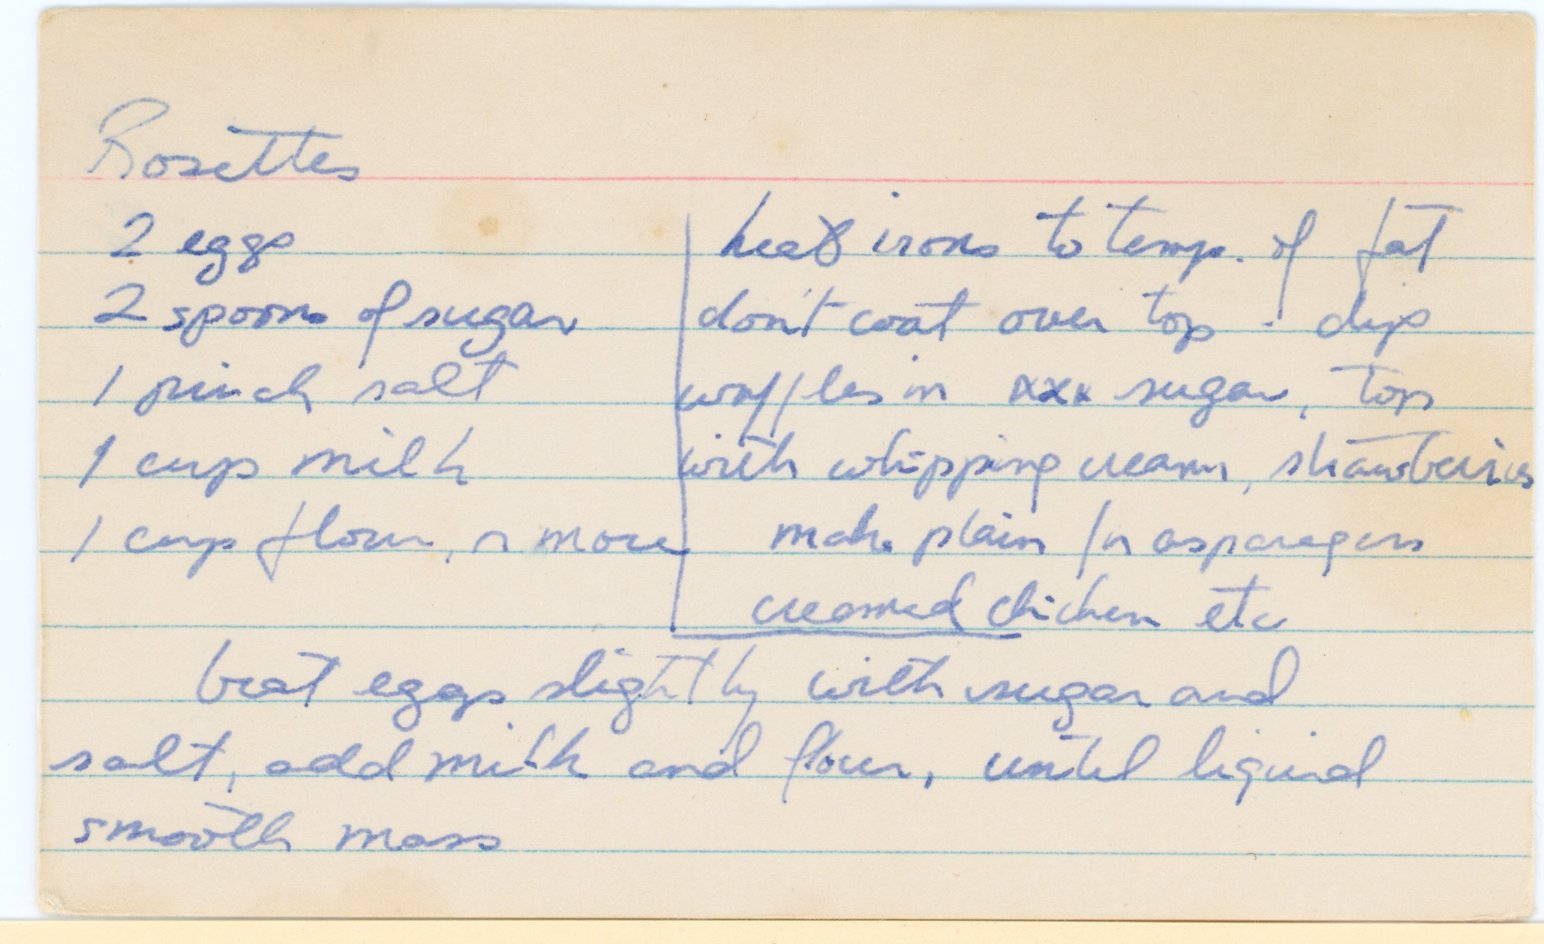 Rosettes
2 eggs
2 spoons of sugar
1 pinch salt
1 cup milk
1 cup flour, or more
heat irons to temp. of fat
don't coat over top - dip
waffles in xxx sugar, top
with whipping cream, strawberries
make plain for asparagus
creamed chicken etc
beat eggs slightly with sugar and
salt, add milk and flour, until liquid
smooth mass